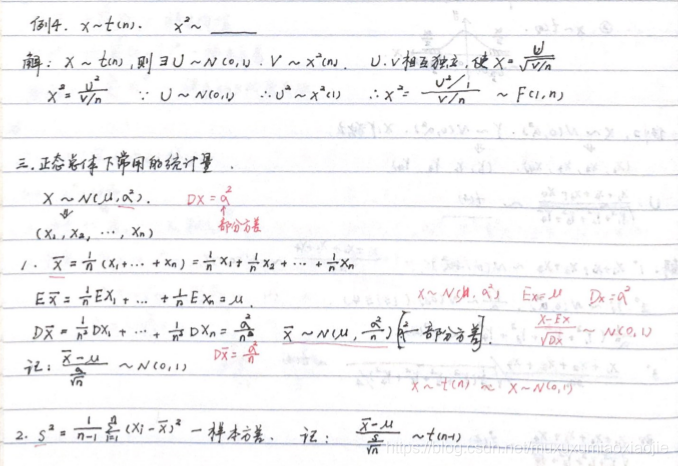 例4. X~t(n). X²~ ____
解: X~t(n), 则∃U~N(0,1). V~x²(n). U.V相互独立, 使X=U/√(V/n)
X²=U²/(V/n) ∵ U~N(0,1) ∴U²~x²(1) ∴X²=(U²/1)/(V/n) ~F(1,n)
三.正态总体下常用的统计量.
X~N(μ,a²). DX=a²
部分方差
(X₁,X₂,…,Xn)
1. X̄=1/n(X₁+…+Xn)=1/n X₁+1/n X₂+…+1/n Xn
EX̄=1/n EX₁+…+1/n EXn=μ. X~N(μ,a²) EX=μ DX=a²
DX̄=1/n² DX₁+…+1/n² DXn=na²/n² X̄~N(μ,a²/n) [a²—部分方差]. (X-EX)/√DX ~N(0,1)
记: (X̄-μ)/(a/√n) ~N(0,1) DX̄=a²/n
X~t(n) X~N(0,1)
2. S²=1/(n-1) Σᵢ₌₁ⁿ(Xi-X̄)² —样本方差. 记: (X̄-μ)/(S/√n) ~t(n-1)